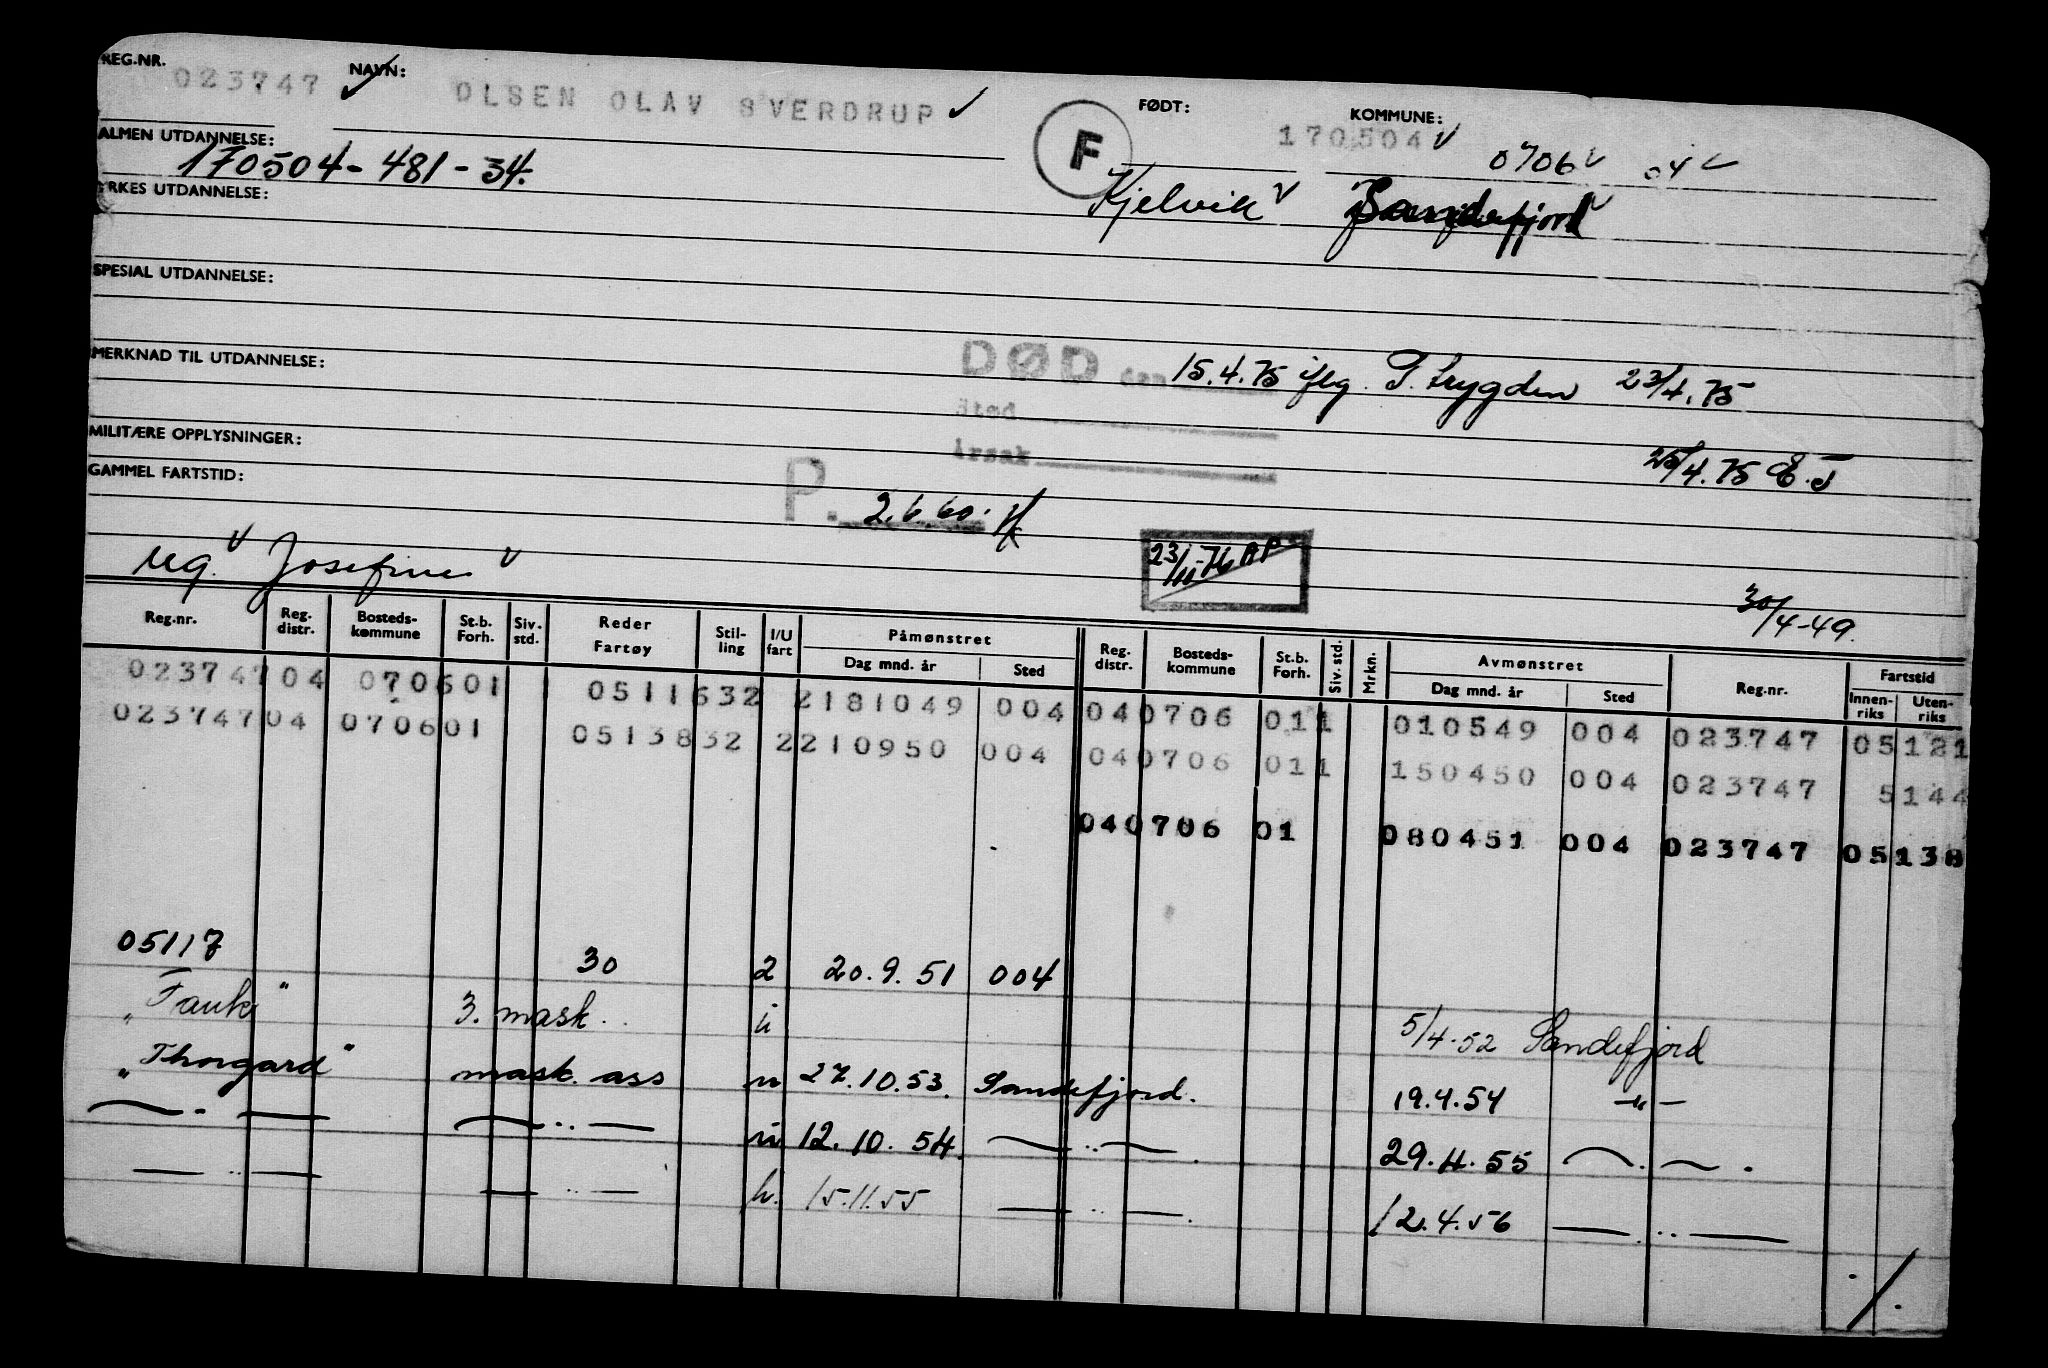 REG.NR. 023747 NAVN: OLSEN OLAV SVERDRUP F FØDT: 170504 KOMMUNE: 0706 04
ALMEN UTDANNELSE: 170504-481-34.
Kjelvik Sandefjord
YRKES UTDANNELSE:
SPESIAL UTDANNELSE:
MERKNAD TIL UTDANNELSE:
DØD den 15.4.75 iflg. S. trygden 23/4.75
Sted
Årsak
MILITÆRE OPPLYSNINGER:
25/4.75 E.J
GAMMEL FARTSTID:
P. 2.6.60.
23/11-76 AP
reg. Josefine
30/4-49.
Reg.nr. Reg. distr. Bosteds-kommune St.b. Forh. Siv. std. Reder Fartøy Stil-ling I/U fart Påmønstret Dag mnd. år Sted Reg. distr. Bosteds-kommune St.b. Forh. Siv. std. Mrkn. Avmønstret Dag mnd. år Sted Reg.nr. Fartstid Innen-riks Uten-riks
023747 04 0706 01 0511632 2181049 004 040706 011 010549 004 023747 05121
023747 04 0706 01 0513832 2210950 004 040706 011 150450 004 023747 5144
040706 01 080451 004 023747 05138
05117 30 2 20.9.51 004
"Tauki" 3. mask. u 5/4-52 Sandefjord
"Thorgard" mask. ass u 27.10.53. Sandefjord. 19.4.54 —"—
— " — — " — u 12.10.54. — " — 29.4.55 — " —
— " — — " — h. 15.11.55 — " — 12.4.56 — " —